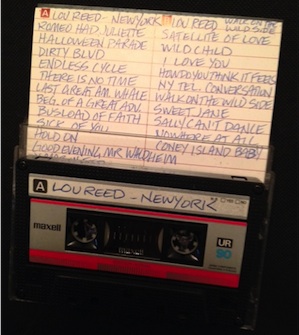 A LOU REED - NEW YORK
ROMEO HAD JULIETTE
HALLOWEEN PARADE
DIRTY BLVD
ENDLESS CYCLE
THERE IS NO TIME
LAST GREAT AM. WHALE
BEG. OF A GREAT ADV.
BUSLOAD OF FAITH
SICK OF YOU
HOLD ON
GOOD EVENING MR WALDHEIM
LOU REED WALK ON THE WILD SIDE
SATELLITE OF LOVE
WILD CHILD
I LOVE YOU
HOW DO YOU THINK IT FEELS
NY TEL. CONVERSATION
WALK ON THE WILD SIDE
SWEET JANE
SALLY CAN'T DANCE
NOWHERE AT ALL
CONEY ISLAND BABY
A LOU REED - NEW YORK
maxell
UR
90